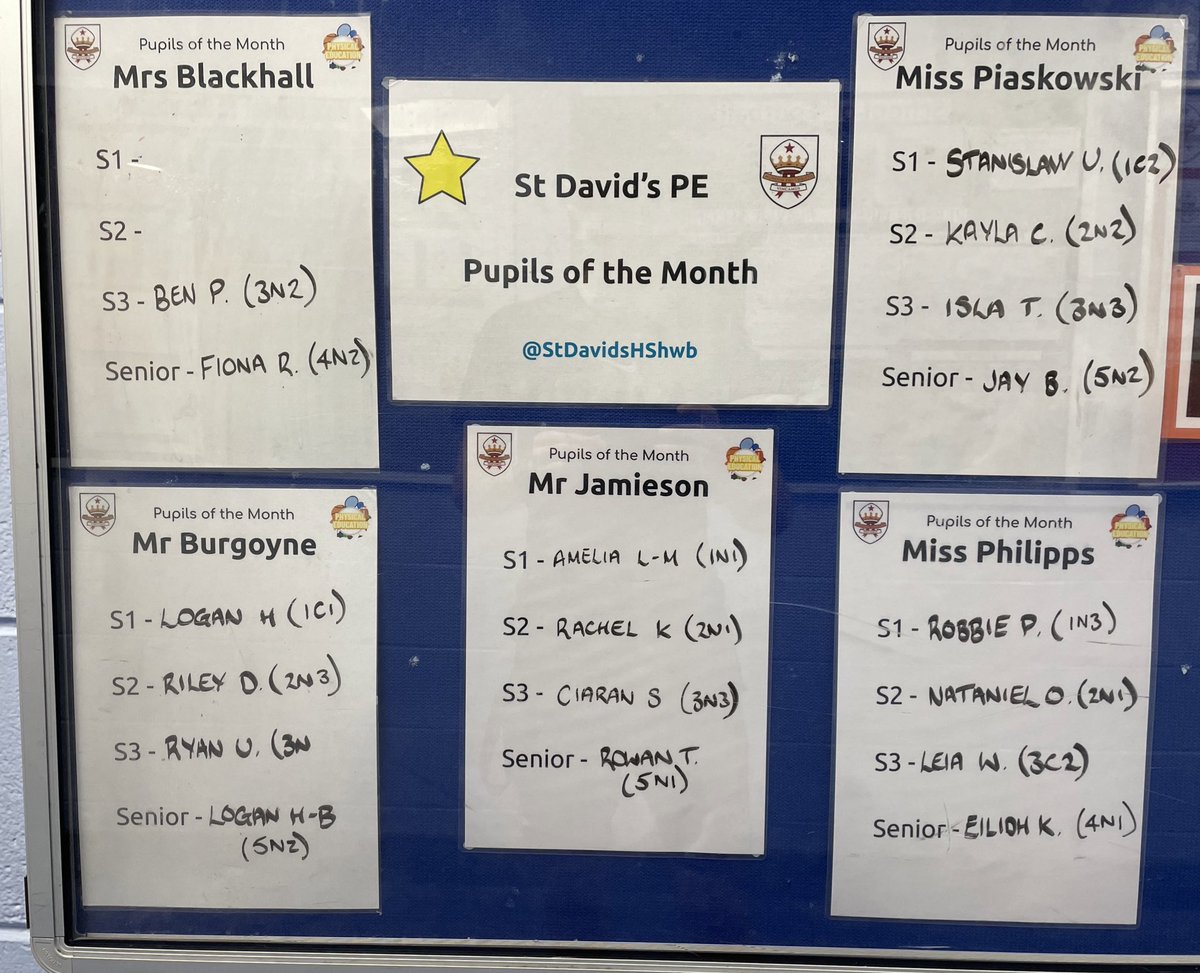 Pupils of the Month
PHYSICAL
EDUCATION
Mrs Blackhall
S1 -
S2 -
S3 - BEN P. (3N2)
Senior - FIONA R. (4N2)
St David's PE
Pupils of the Month
@StDavidsHShwb
Pupils of the Month
PHYSICAL
EDUCATION
Miss Piaskowski
S1 - STANISLAW U. (1C2)
S2 - KAYLA C. (2N2)
S3 - ISLA T. (3N3)
Senior - JAY B. (5N2)
Pupils of the Month
PHYSICAL
EDUCATION
Mr Burgoyne
S1 - LOGAN H (1C1)
S2 - RILEY D. (2N3)
S3 - RYAN U. (3N
Senior - LOGAN H-B
(5N2)
Pupils of the Month
PHYSICAL
EDUCATION
Mr Jamieson
S1 - AMELIA L-M (1N1)
S2 - RACHEL K (2N1)
S3 - CIARAN S (3N3)
Senior - ROWAN T.
(5N1)
Pupils of the Month
PHYSICAL
EDUCATION
Miss Philipps
S1 - ROBBIE P. (1N3)
S2 - NATANIEL O. (2N1)
S3 - LEIA W. (3C2)
Senior - EILIDH K. (4N1)